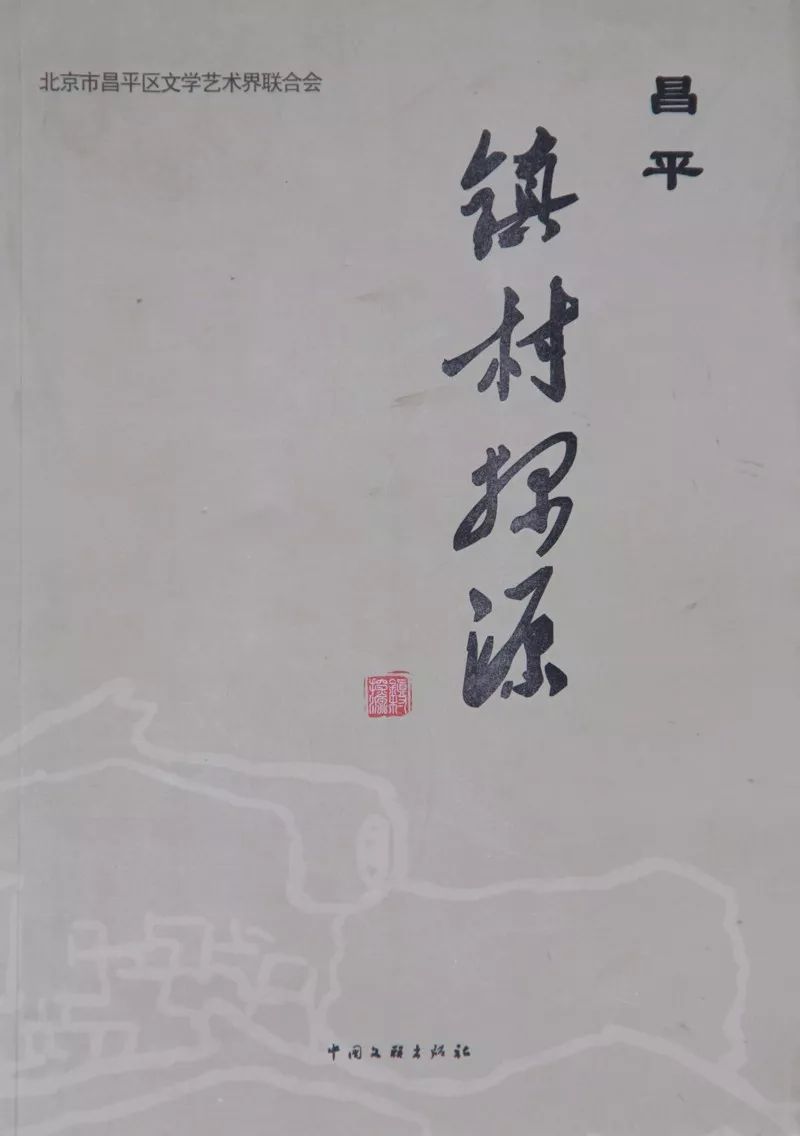 北京市昌平区文学艺术界联合会
昌平
镇村探源
中国文联出版社